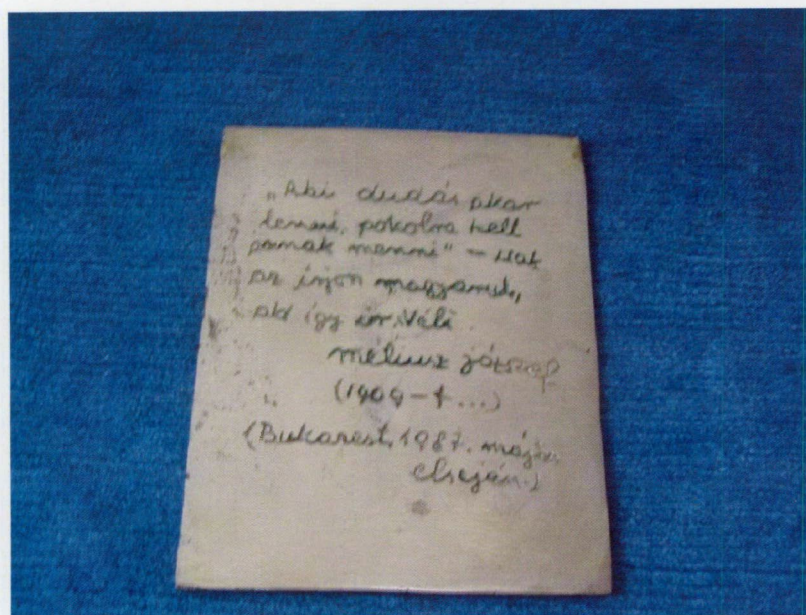 „Aki dudás akar
lenni, pokolra kell
annak menni" – csak
az írjon magyarul,
aki így
méliusz józsef
(1909 – † ...)
(Bukarest, 1987. május
elsején.)